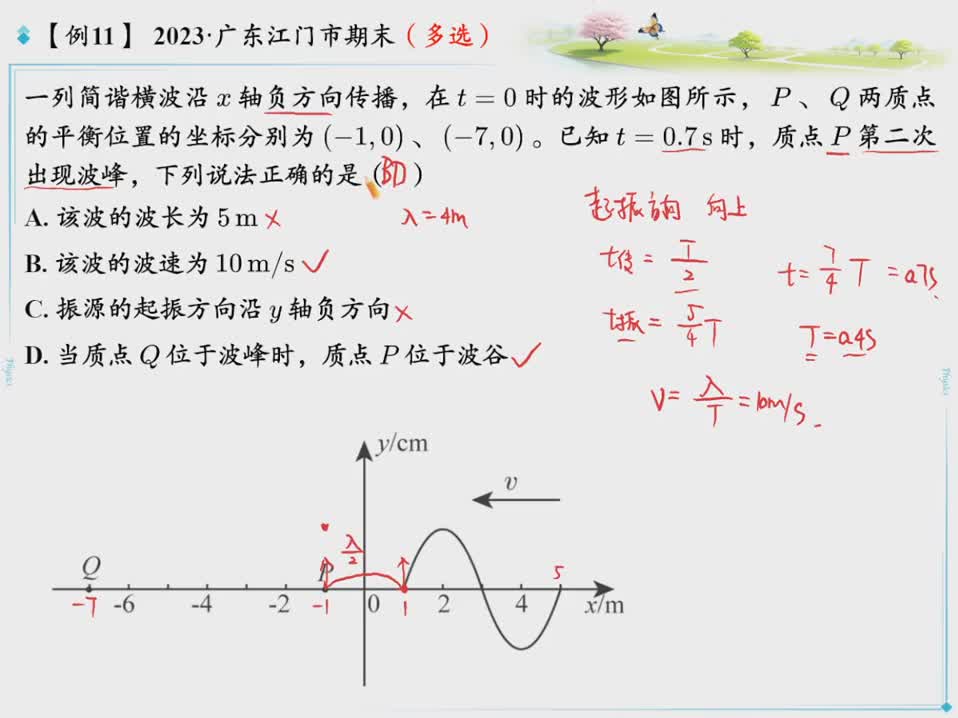 【例11】 2023·广东江门市期末（多选）
一列简谐横波沿 x 轴负方向传播，在 t = 0 时的波形如图所示，P、Q 两质点
的平衡位置的坐标分别为 (−1,0)、(−7,0)。已知 t = 0.7 s 时，质点 P 第二次
出现波峰，下列说法正确的是（BD）
A. 该波的波长为 5 m × λ=4m
B. 该波的波速为 10 m/s ✓
C. 振源的起振方向沿 y 轴负方向 ×
D. 当质点 Q 位于波峰时，质点 P 位于波谷 ✓
起振方向 向上
t传 = T/2
t振 = 5/4 T
t = 7/4 T = 0.7s
T = 0.4s
V = λ/T = 10m/s
y/cm
v
Q λ/2 P 5
-7 -6 -4 -2 -1 0 1 2 4 x/m
Physics
Physics